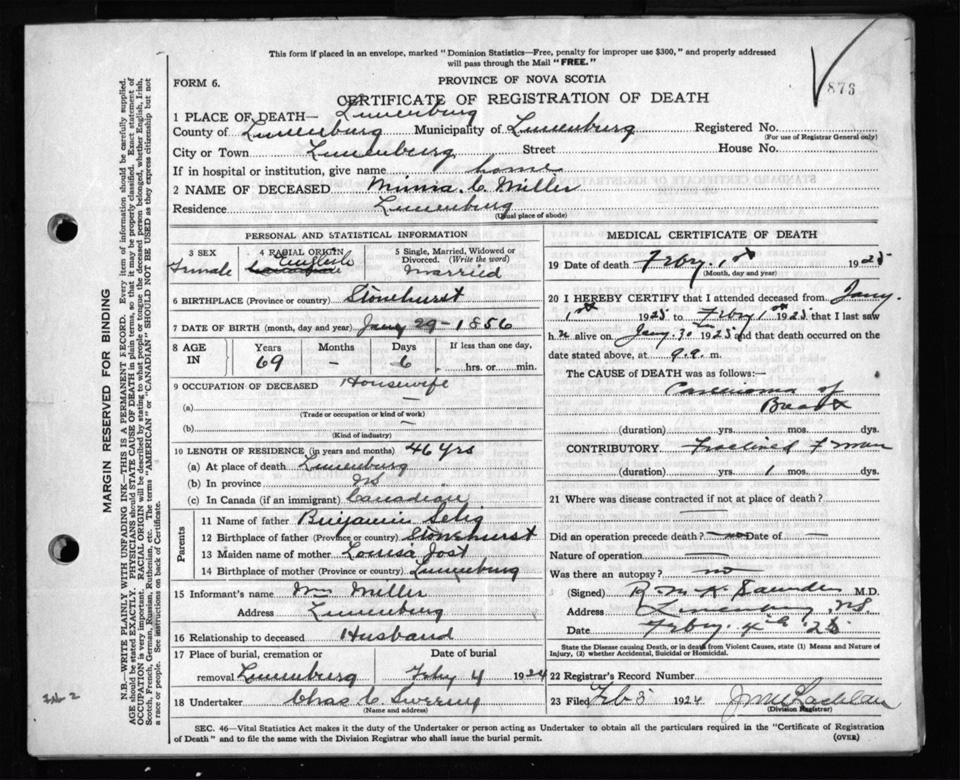 This form if placed in an envelope, marked "Dominion Statistics—Free, penalty for improper use $300," and properly addressed
will pass through the Mail "FREE."
876
FORM 6.
PROVINCE OF NOVA SCOTIA
CERTIFICATE OF REGISTRATION OF DEATH
1 PLACE OF DEATH— Lunenburg
County of Lunenburg Municipality of Lunenburg Registered No.
(For use of Registrar General only)
City or Town Lunenburg Street House No.
If in hospital or institution, give name home
2 NAME OF DECEASED Minnia C. Miller
Residence Lunenburg
(Usual place of abode)
PERSONAL AND STATISTICAL INFORMATION
3 SEX Female
4 RACIAL ORIGIN English Canadian
5 Single, Married, Widowed or Divorced. (Write the word) Married
6 BIRTHPLACE (Province or country) Stonehurst
7 DATE OF BIRTH (month, day and year) Jany 29-1856
8 AGE IN Years 69 Months - Days 6 If less than one day, hrs. or min.
9 OCCUPATION OF DECEASED Housewife
(a) —
(Trade or occupation or kind of work)
(b) —
(Kind of industry)
10 LENGTH OF RESIDENCE (in years and months) 46 yrs
(a) At place of death Lunenburg
(b) In province NS
(c) In Canada (if an immigrant) Canadian
Parents
11 Name of father Binjamin Selig
12 Birthplace of father (Province or country) Stonehurst
13 Maiden name of mother Louisa Jost
14 Birthplace of mother (Province or country) Lunenburg
15 Informant's name Miller
Address Lunenburg
16 Relationship to deceased Husband
17 Place of burial, cremation or removal Lunenburg Date of burial Feby 4 1924
18 Undertaker Chas C. Sweeny
(Name and address)
MEDICAL CERTIFICATE OF DEATH
19 Date of death Feby. 1st 1925
(Month, day and year)
20 I HEREBY CERTIFY that I attended deceased from Jany.
1st 1925 to Feby 1st 1925 that I last saw
h er alive on Jany. 30th 1925 and that death occurred on the
date stated above, at 9 a. m.
The CAUSE of DEATH was as follows:—
Carcinoma of
Breast
(duration) yrs. mos. dys.
CONTRIBUTORY Fractured Femur
(duration) yrs. 1 mos. dys.
21 Where was disease contracted if not at place of death? —
Did an operation precede death? no Date of —
Nature of operation —
Was there an autopsy? no
(Signed) Saunders M.D.
Address Lunenburg, NS
Date Feby. 4th 25
State the Disease causing Death, or in death from Violent Causes, state (1) Means and Nature of
Injury, (2) whether Accidental, Suicidal or Homicidal.
22 Registrar's Record Number
23 Filed Feb 5 1924
(Division Registrar)
SEC. 46—Vital Statistics Act makes it the duty of the Undertaker or person acting as Undertaker to obtain all the particulars required in the "Certificate of Registration
of Death" and to file the same with the Division Registrar who shall issue the burial permit. (OVER)
MARGIN RESERVED FOR BINDING
N.B.—WRITE PLAINLY WITH UNFADING INK—THIS IS A PERMANENT RECORD. Every item of information should be carefully supplied.
AGE should be stated EXACTLY. PHYSICIANS should STATE CAUSE OF DEATH in plain terms, so that it may be properly classified. Exact statement of
OCCUPATION is very important. RACIAL ORIGIN will be described by stating to what people or tongue the deceased person belonged, whether English, Irish,
Scotch, French, German, Russian, Ruthenian, etc. The terms "AMERICAN" or "CANADIAN" SHOULD NOT BE USED as they express citizenship but not
a race or people. See instructions on back of Certificate.